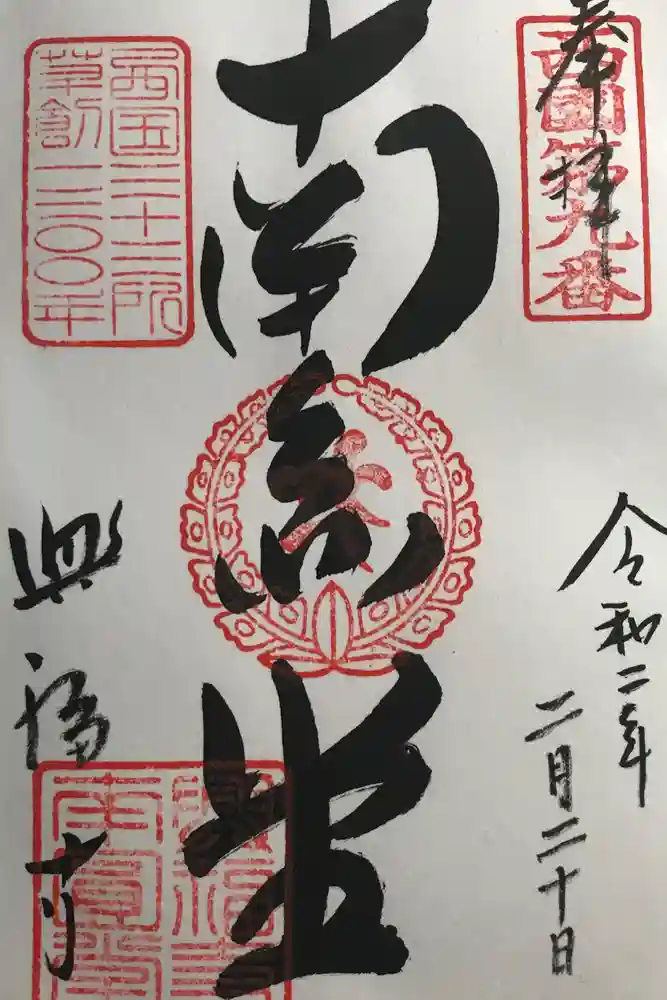 奉拝
西國第九番
令和二年
二月二十日
南円堂
西国三十三所
草創一三〇〇年
興福寺
興福寺
南圓堂